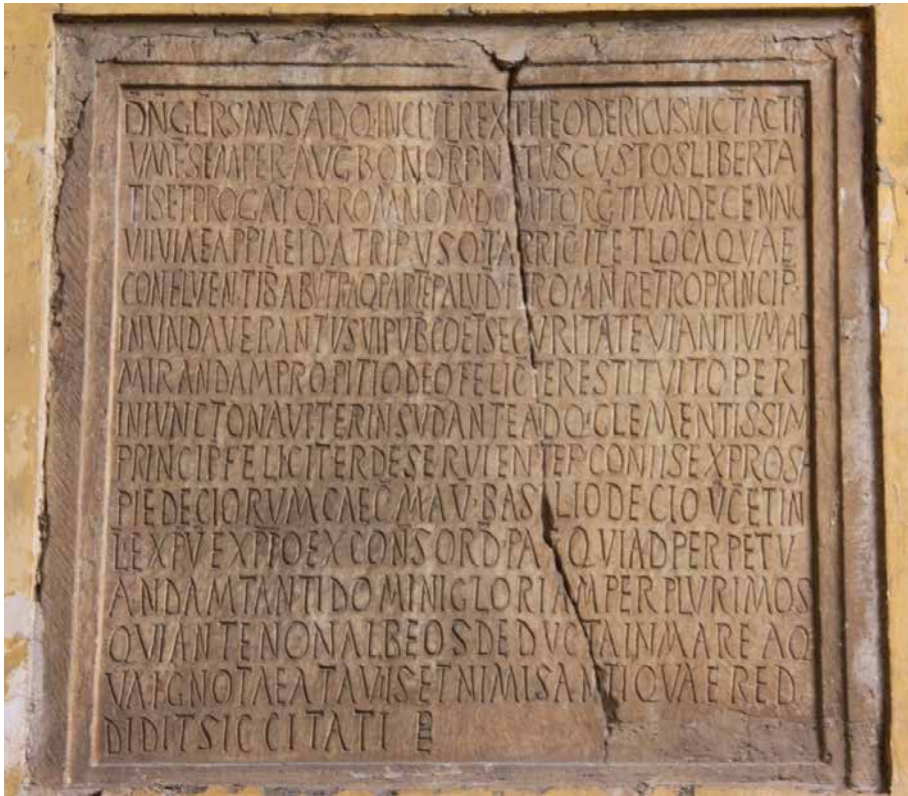 DNGLRSMVSADQINCLYTREXTHEODERICVSVICTACTR
VMFSEMPERAVGBONORPNATVSCVSTOSLIBERTA
TISETPROGATORROMNIOM·DOMITORGTIVMDECENNO
VIIVIAEAPPIAEIDATRIPVSQTAPRICITETLOCAQVAE
CONFLVENTIBABVTRAQPARTEPALVDPROMNRETROPRINCIP·
INVNDAVERANTVSVIPVBCOETSECVRITATEVIANTIVMAD
MIRANDAMPROPITIODEOFELICITERESTITVITOPERI
INIVNCTONAVITERINSVDANTEADQ·CLEMENTISSIM
PRINCIPFELICITERDESERVIENTEPCONIISEXPROSA
PIEDECIORVMCAECMAV·BASILIODECIOVCETINL
LEXPVEXPPOEXCONSORDPATQVIADPERPETV
ANDAMTANTIDOMINIGLORIAMPERPLVRIMOS
QVIANTENONALBEOSDEDVCTAINMAREAQ
VAIGNOTAEATAVIISETNIMISANTIQVAERED
DIDITSICCITATI